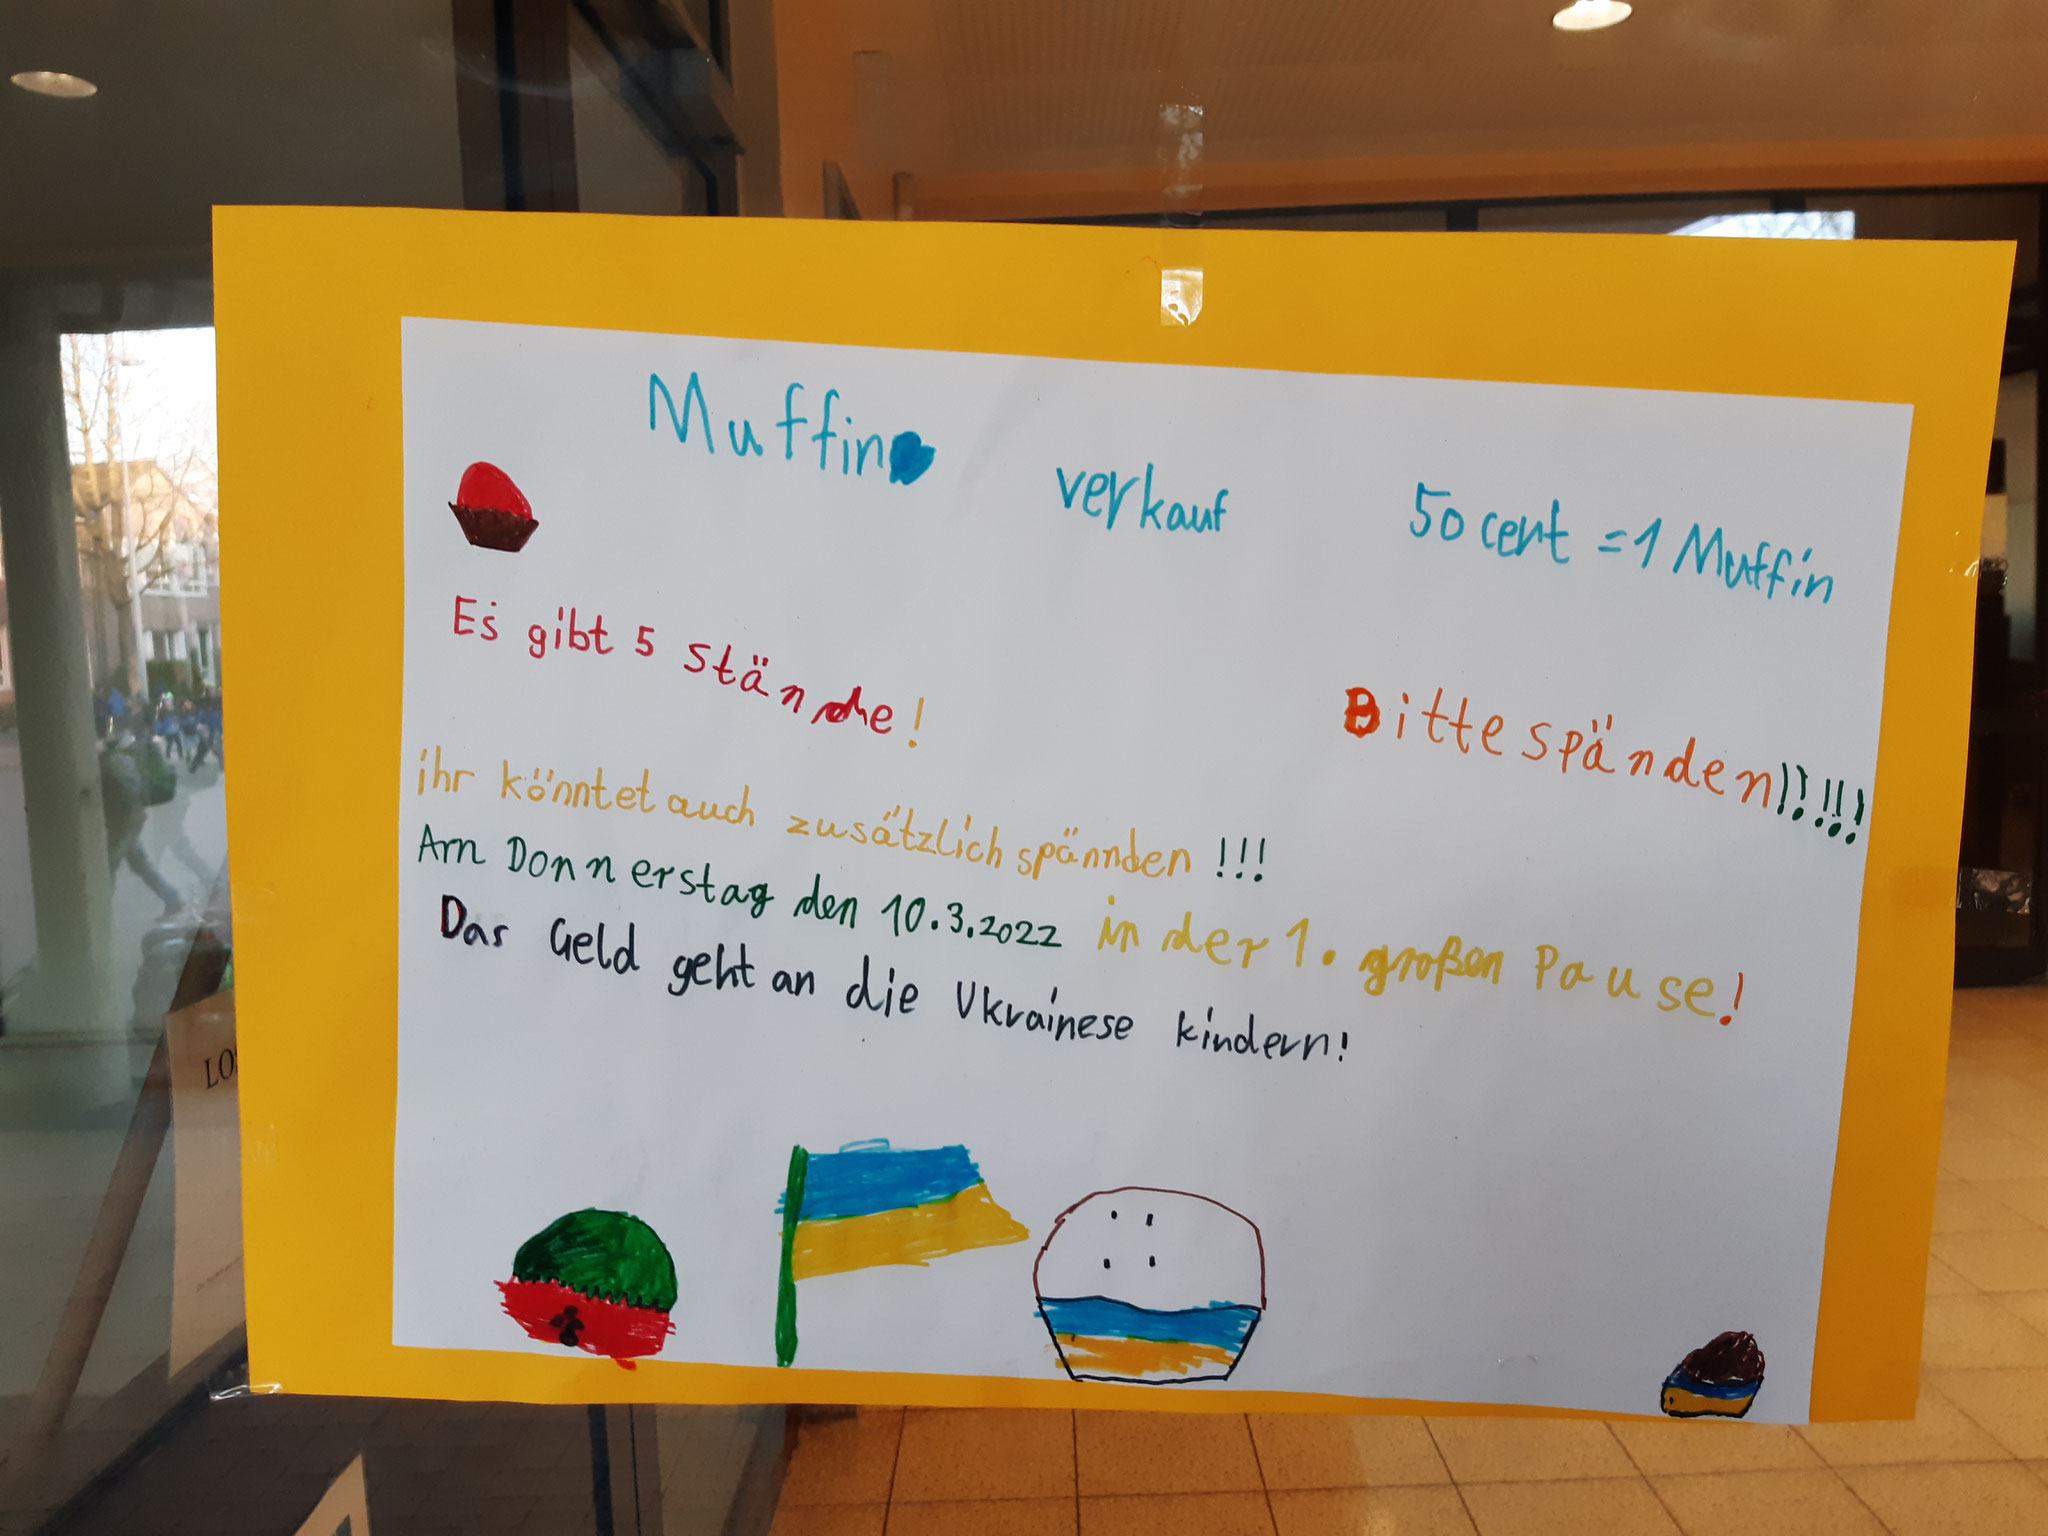 Muffin verkauf 50 cent = 1 Muffin
Es gibt 5 Stände!
Bitte spänden!!!!!!
ihr könntet auch zusätzlich spännden !!!
Am Donnerstag den 10.3.2022 in der 1. großen Pause!
Das Geld geht an die Ukrainese kindern!
LO